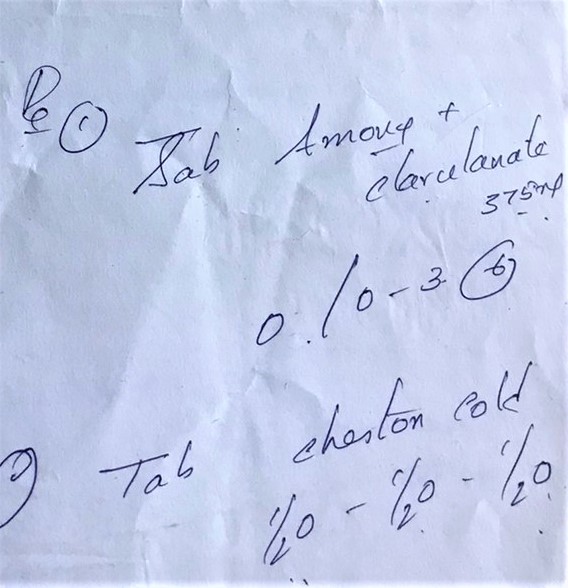 Rx ① Tab Amoxy +
clavulanate
375mg
0 / 0 - 3 ⑥
2) Tab cheston cold
1/2 0 - 1/2 0 - 1/2 0